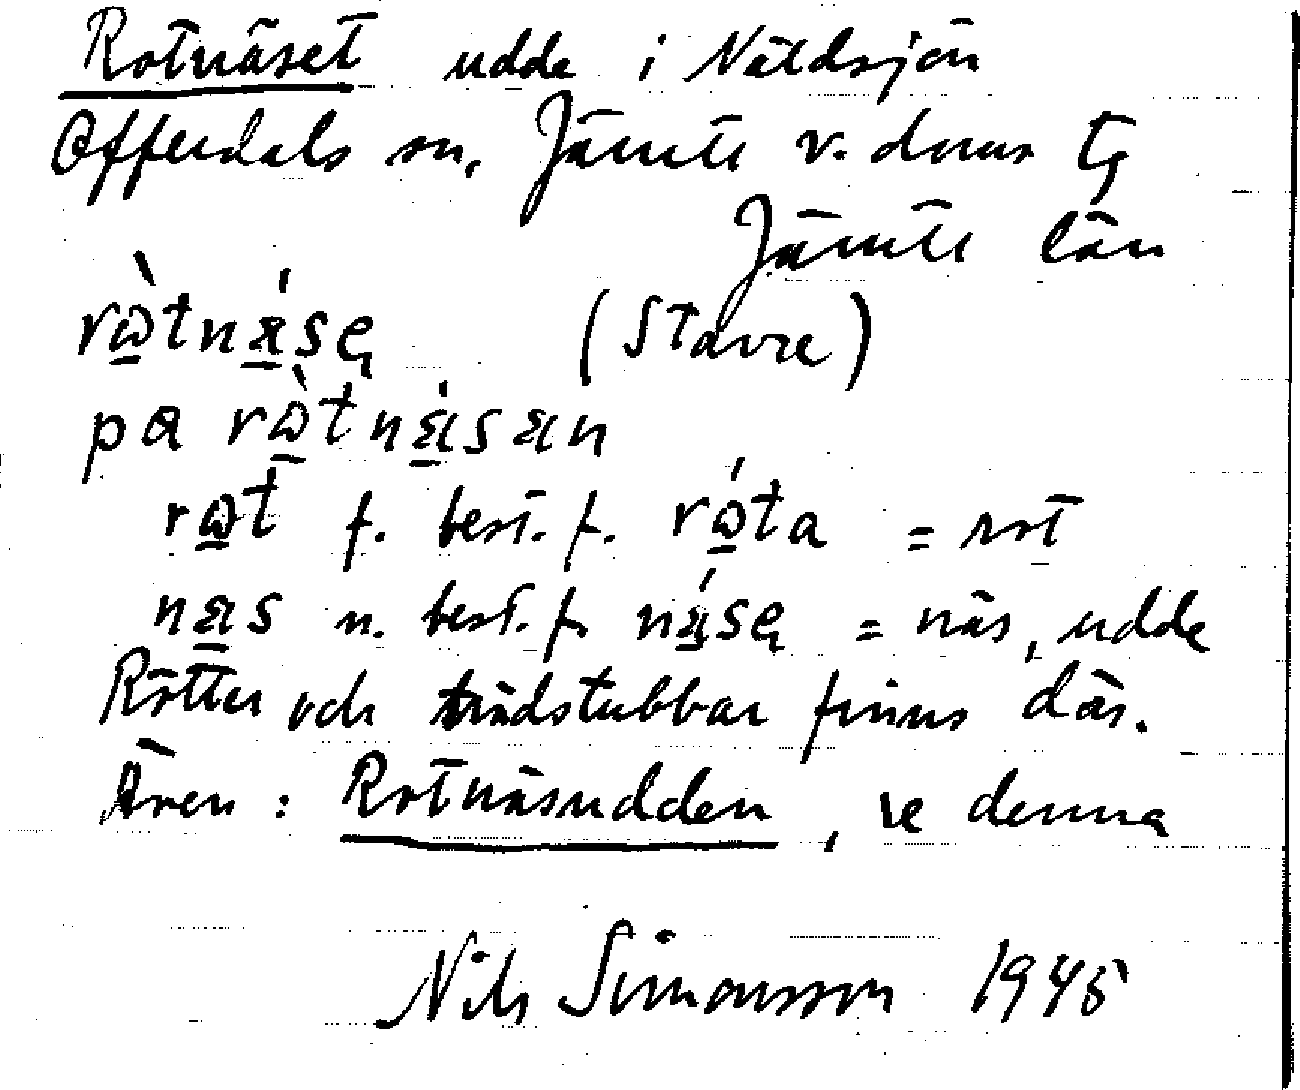 Rotnäset udde i Näldsjön
Offerdals sn, Jämtl v. doms tg
Jämtl län
rὼ̲tnä̲́sę (Stavre)
pα rὼ̲tnä̲́sän
rω̲t f. best. f. rώ̲ta = rot
nä̲s n. best. f. nä̲́sę = näs, udde
Rötter och trädstubbar finns där.
Även : Rotnäsudden, se denna
Nils Simonsson 1945